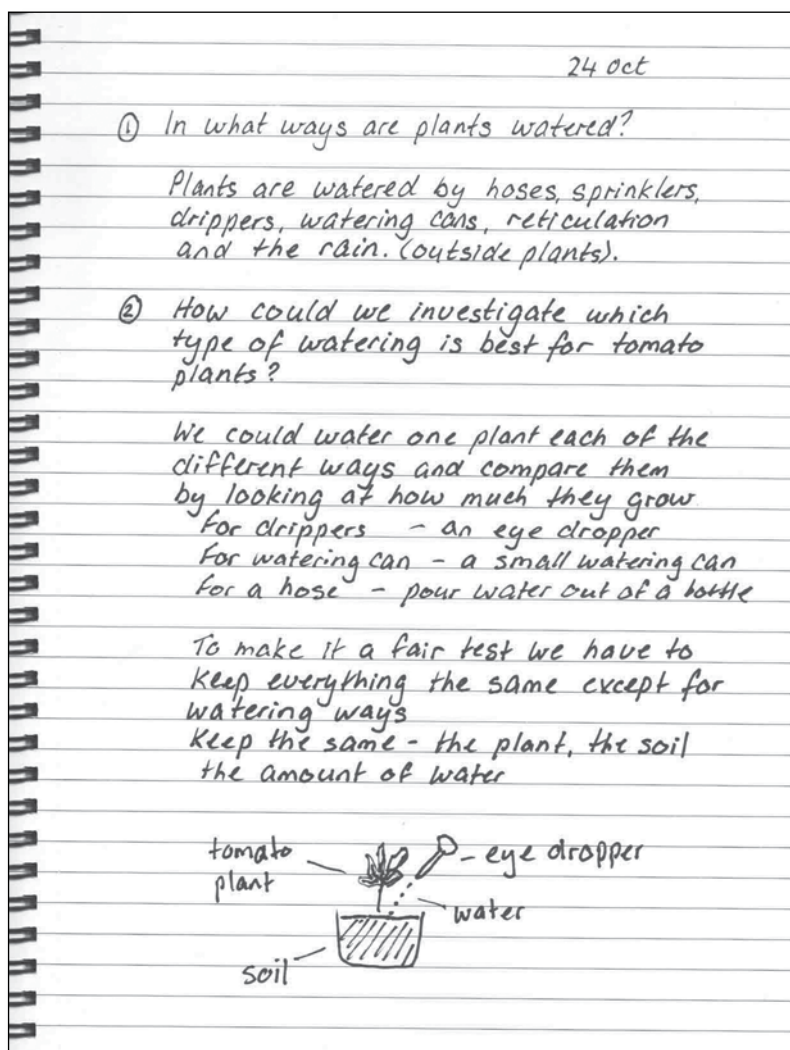 24 Oct
① In what ways are plants watered?
Plants are watered by hoses, sprinklers,
drippers, watering cans, reticulation
and the rain. (outside plants).
② How could we investigate which
type of watering is best for tomato
plants?
We could water one plant each of the
different ways and compare them
by looking at how much they grow
For drippers - an eye dropper
For watering can - a small watering can
For a hose - pour water out of a bottle
To make it a fair test we have to
keep everything the same except for
watering ways
Keep the same - the plant, the soil
the amount of water
tomato
plant
- eye dropper
water
soil